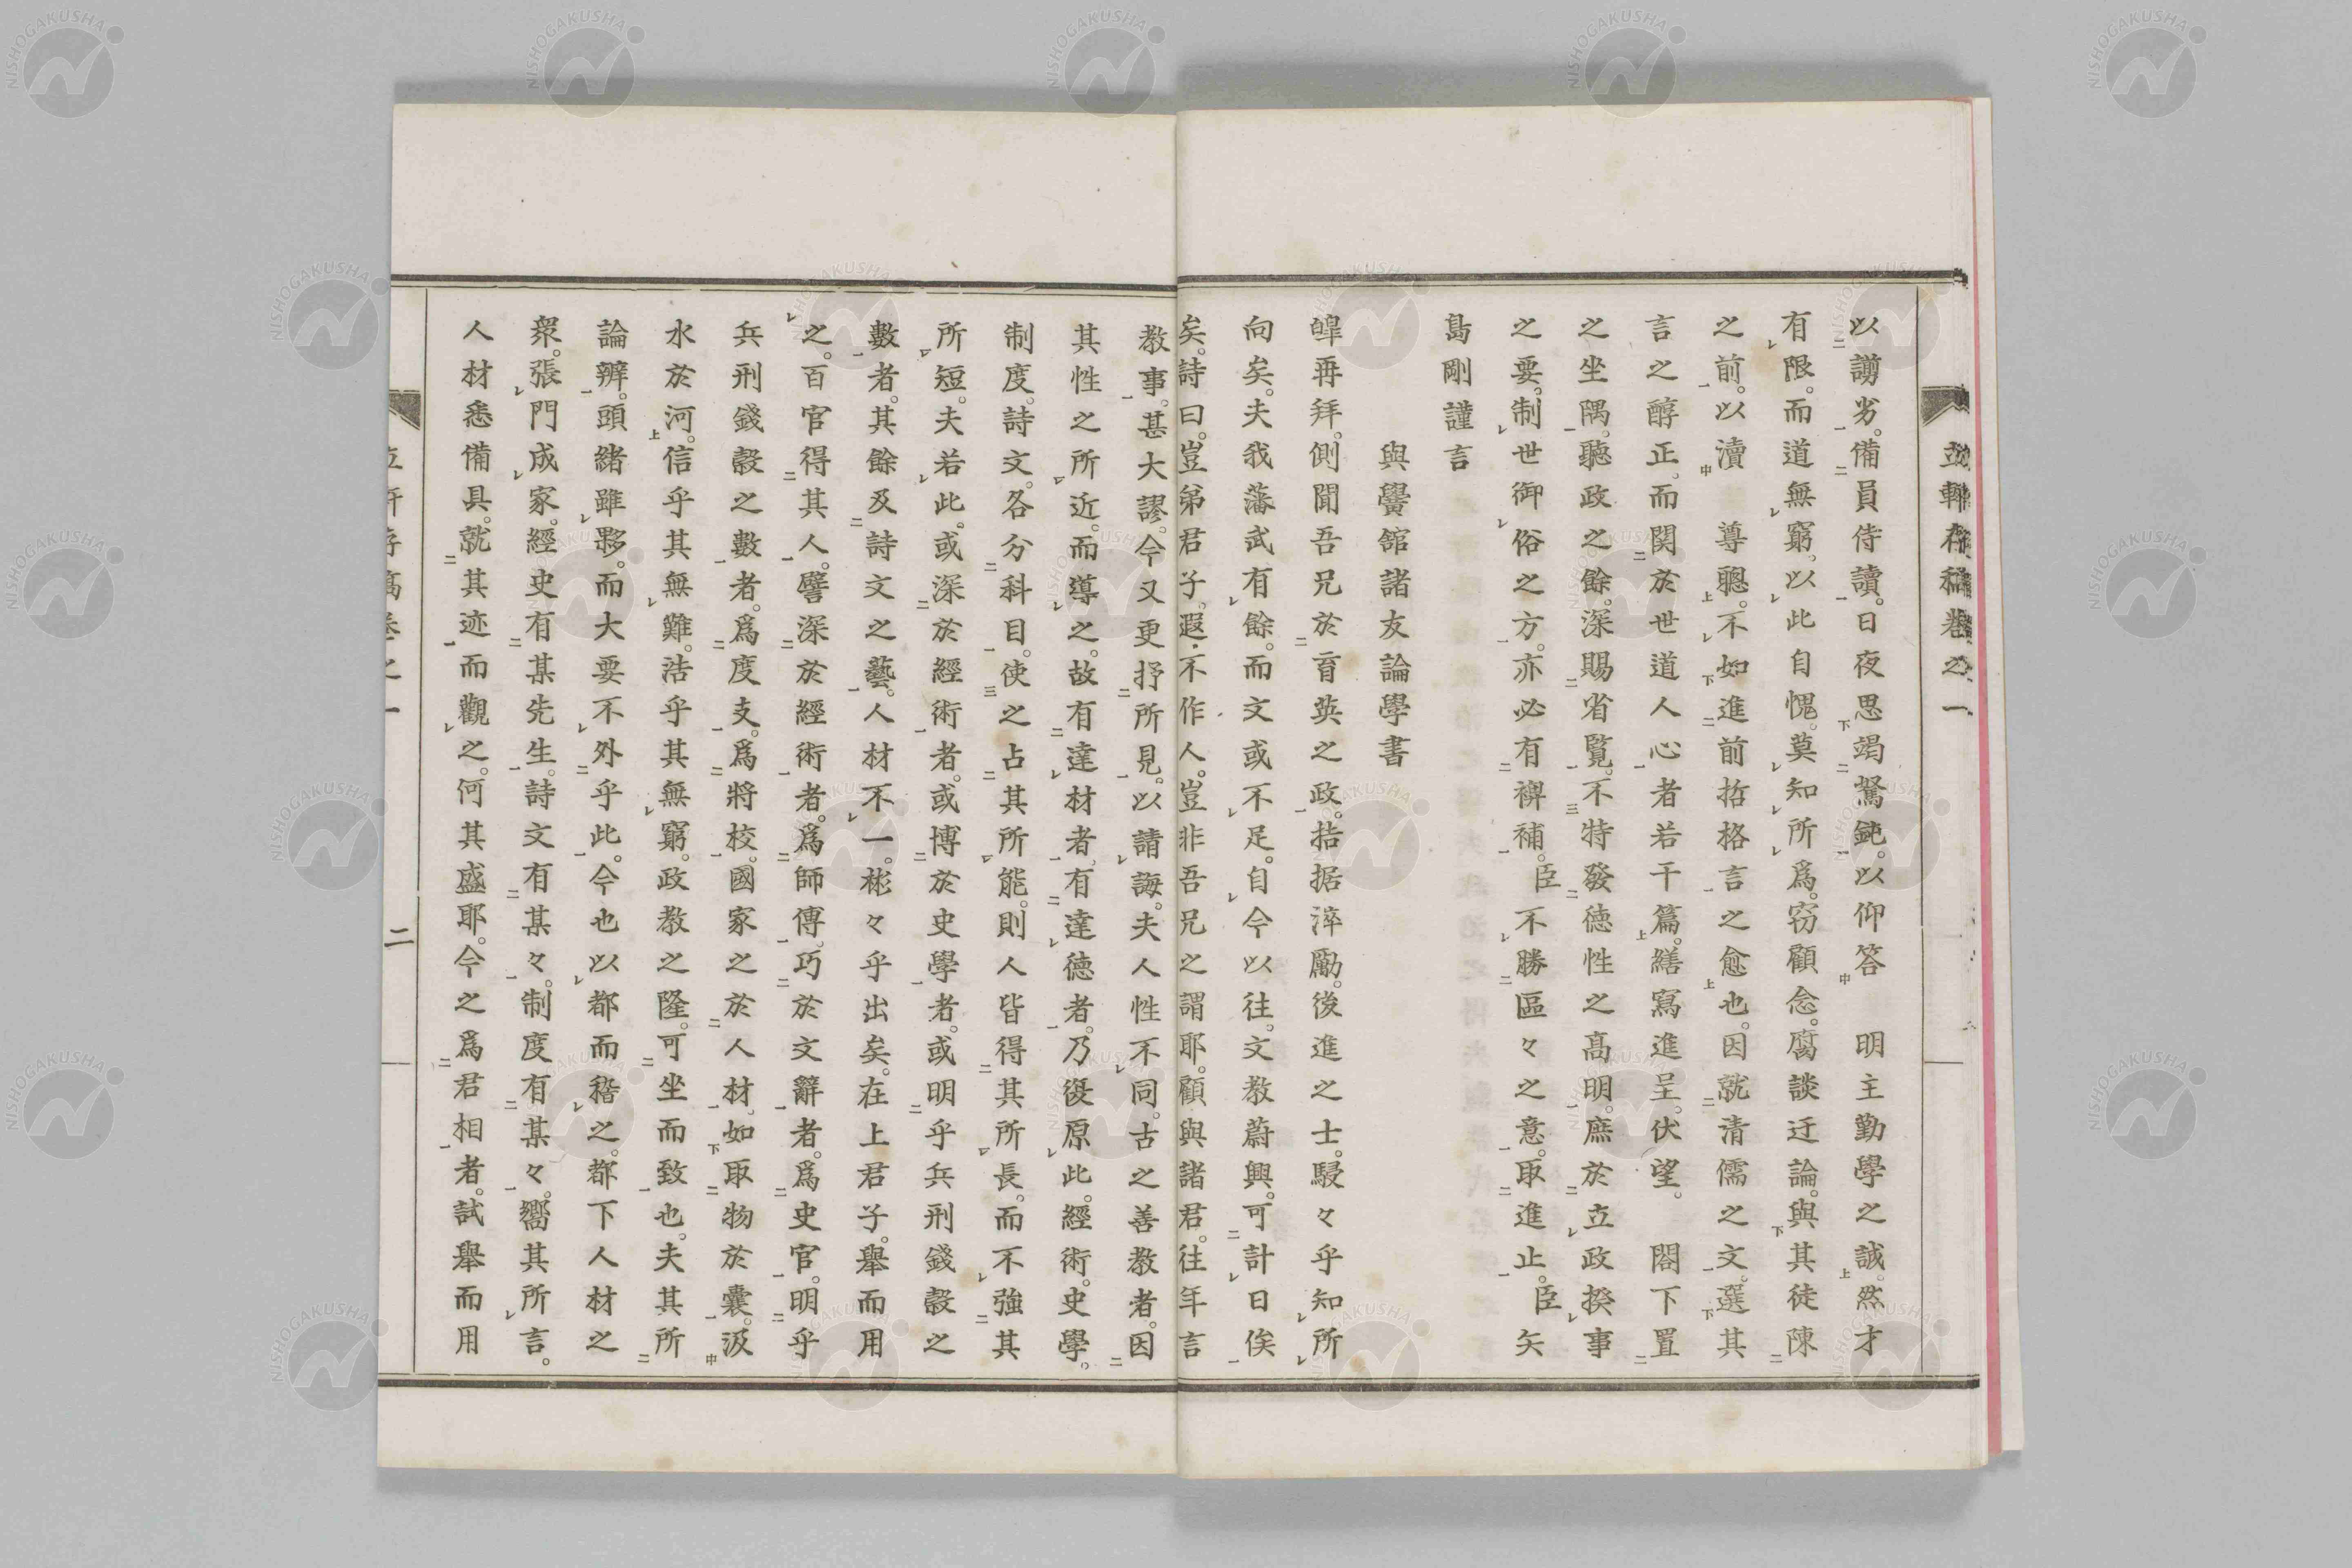 以謭劣。備員侍讀。日夜思竭駑鈍。以仰答　明主勤學之誠。然才
有限。而道無窮。以此自愧。莫知所爲。窃顧念。腐談迂論。與其徒陳
之前。以瀆　尊聰。不如進前哲格言之愈也。因就清儒之文。選其
言之醇正。而関於世道人心者若干篇。繕寫進呈。伏望。　閤下置
之坐隅。聽政之餘。深賜省覽。不特發德性之高明。庶於立政揆事
之要。制世御俗之方。亦必有裨補。臣不勝區々之意。取進止。臣矢
島剛謹言
與黌舘諸友論學書
皥再拜。側聞吾兄於育英之政。拮据淬勵。後進之士。駸々乎知所
向矣。夫我藩武有餘。而文或不足。自今以往。文教蔚興。可計日俟
矣。詩曰。豈弟君子。遐不作人。豈非吾兄之謂耶。顧與諸君。往年言
教事。甚大謬。今又更抒所見。以請誨。夫人性不同。古之善教者。因
其性之所近。而導之。故有達材者。有達德者。乃復原此。經術。史學。
制度。詩文。各分科目。使之占其所能。則人皆得其所長。而不強其
所短。夫若此。或深於經術者。或博於史學者。或明乎兵刑錢穀之
數者。其餘及詩文之藝。人材不一。彬々乎出矣。在上君子。舉而用
之。百官得其人。譬深於經術者。爲師傅。巧於文辭者。爲史官。明乎
兵刑錢穀之數者。爲度支。爲將校。國家之於人材。如取物於囊。汲
水於河。信乎其無難。浩乎其無窮。政教之隆。可坐而致也。夫其所
論辨。頭緒雖夥。而大要不外乎此。今也以都而稽之。都下人材之
衆。張門成家。經史有某先生。詩文有某々。制度有某々。嚮其所言。
人材悉備具。就其迹而觀之。何其盛耶。今之爲君相者。試舉而用
立軒存稿卷之一
二